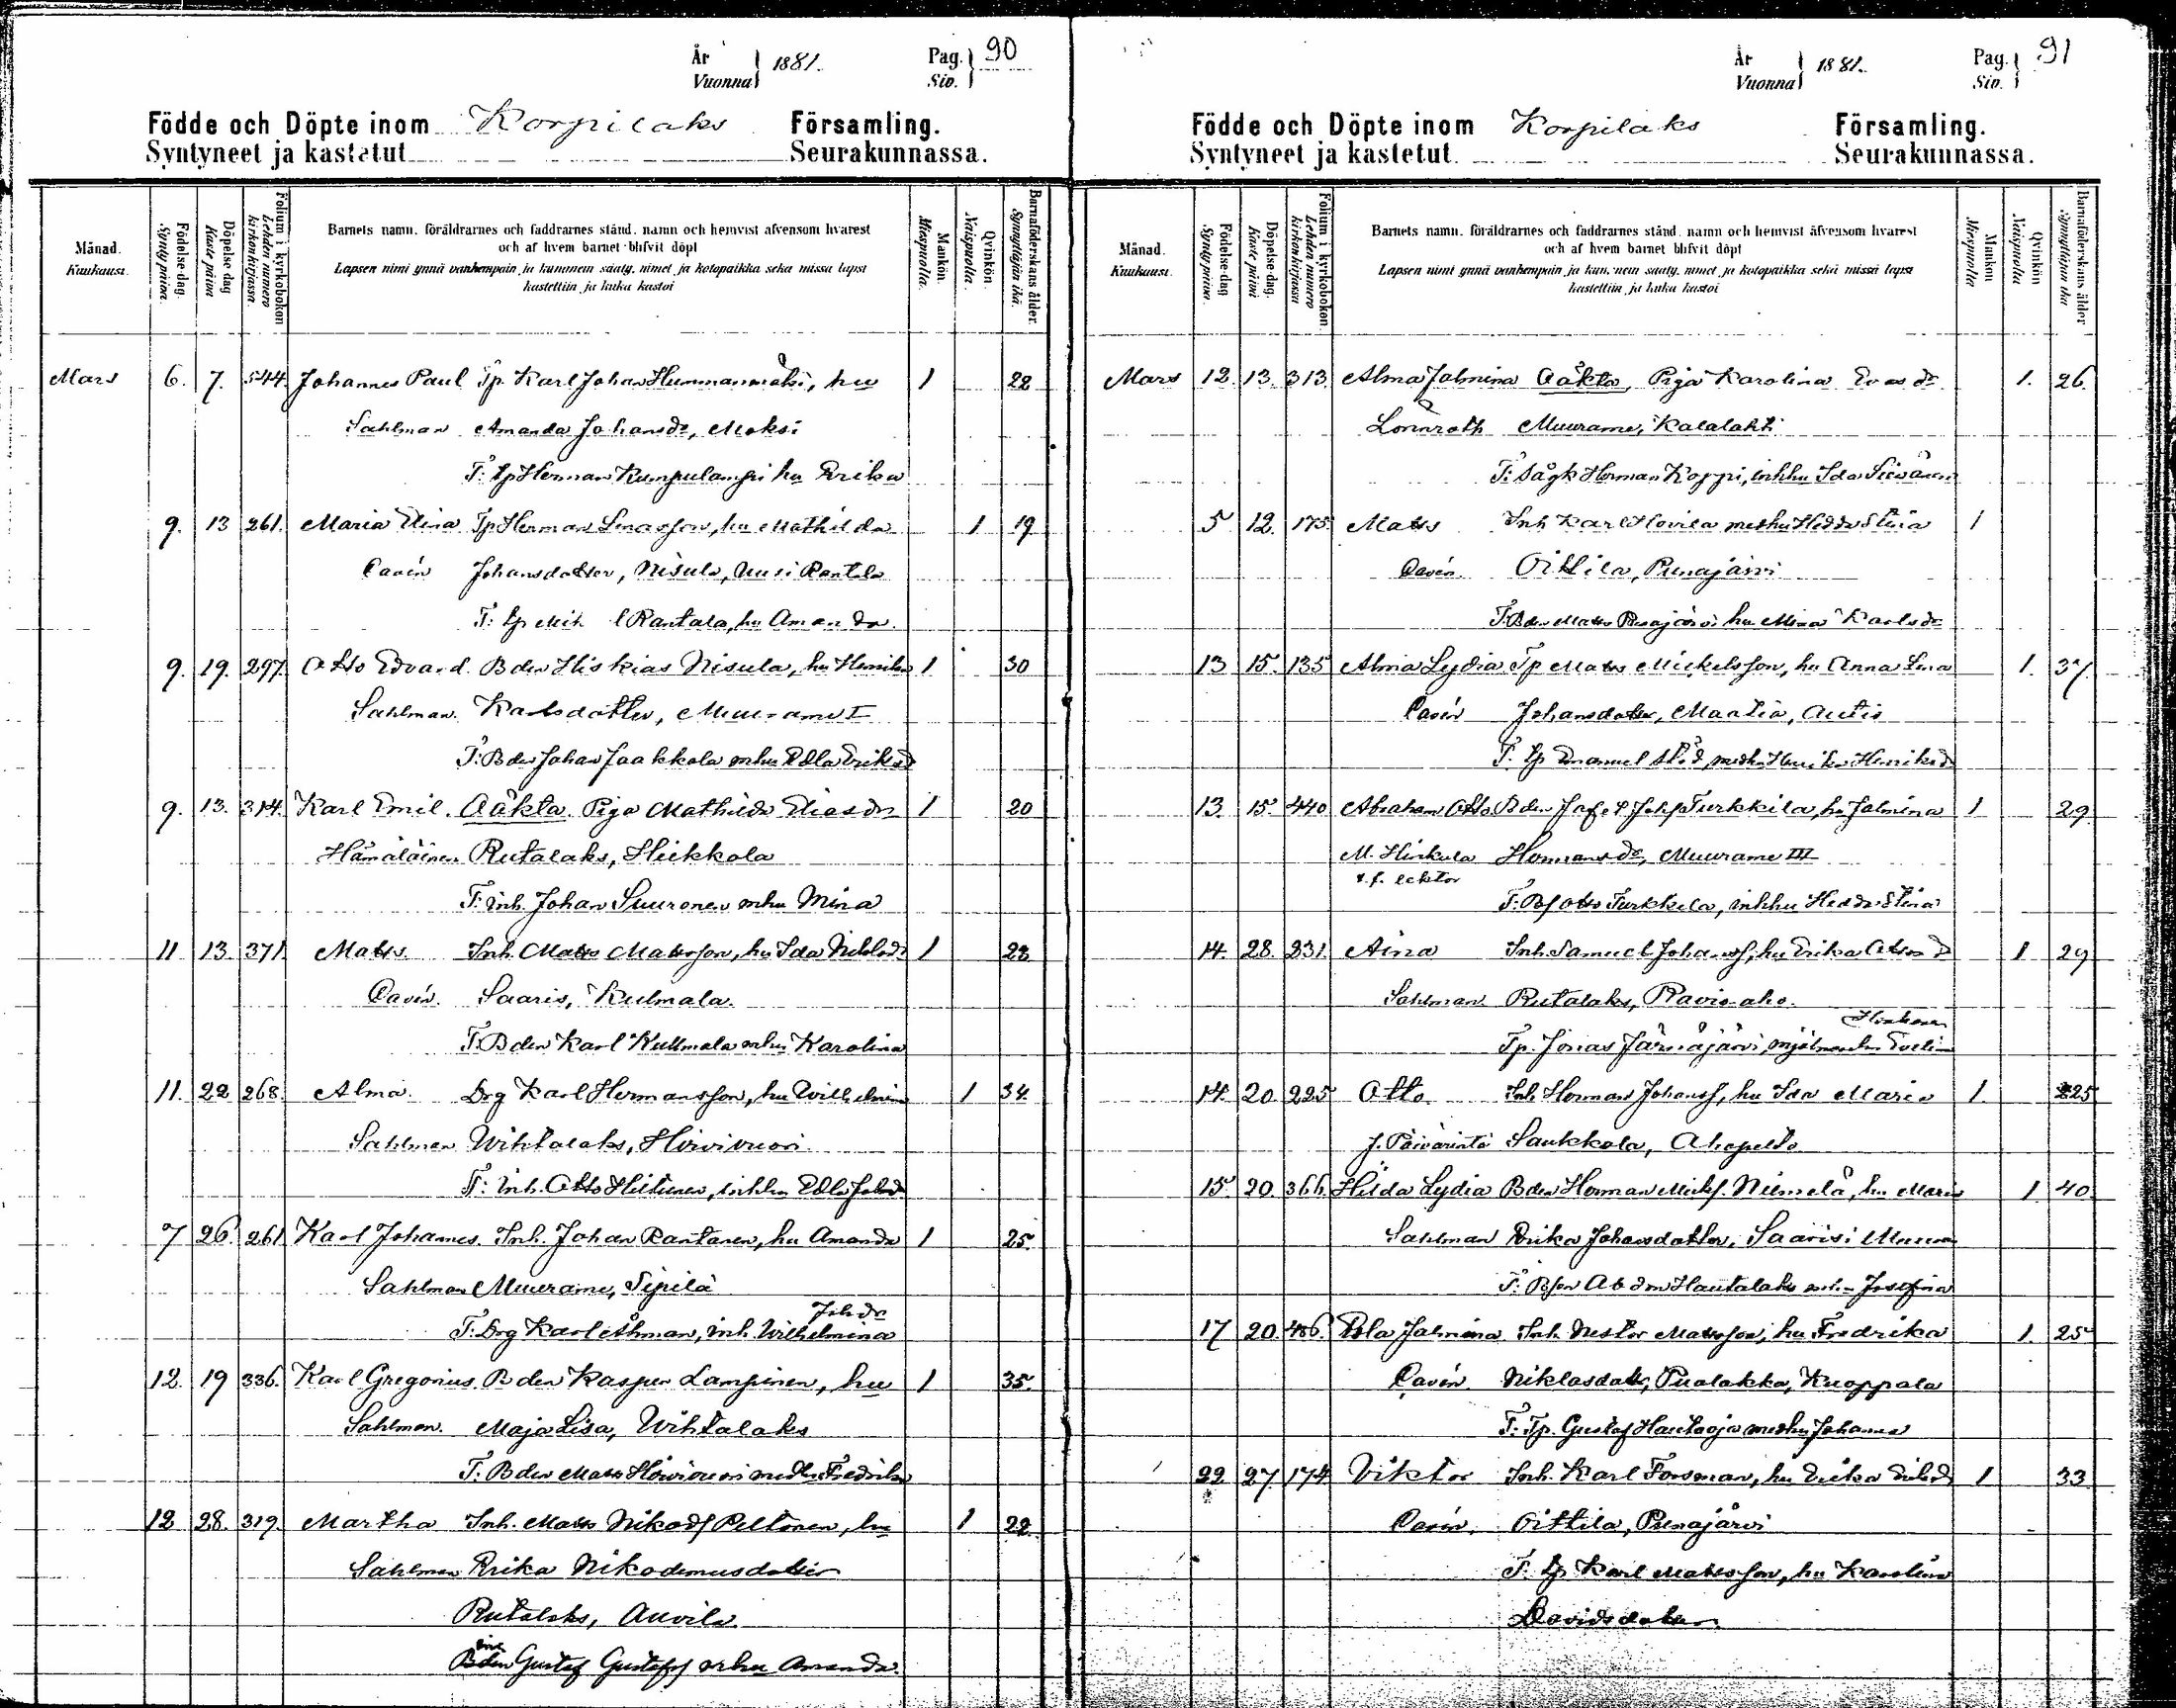 År
Vuonna } 1881.
Pag.
Siv. } 90
Födde och Döpte inom Korpilaks Församling.
Syntyneet ja kastetut Seurakunnassa.
Månad.
Kuukausi.
Födelse dag.
Synty päivä.
Döpelse dag
Kaste päivä
Folium i kyrkoboken
Lehden numero
kirkonkirjassa
Barnets namn, föräldrarnes och faddrarnes stånd, namn och hemvist äfvensom hvarest
och af hvem barnet blifvit döpt
Lapsen nimi ynnä vanhempain ja kummein sääty, nimet ja kotopaikka sekä missä lapsi
kastettiin ja kuka kastoi
Mankön.
Miespuolta.
Qvinkön.
Naispuolta.
Barnaföderskans ålder.
Synnyttäjän ikä.
Mars 6. 7. 544. Johannes Paul Tp Karl Johan Hummanmäki, hu 1 22
Sahlman Amanda Johansdr, Moksi
F: Lp Herman Kumpulampi hu Erika
9. 13 261. Maria Elina Tp Herman Enasson, hu Mathilda 1 19
Cavén Johansdotter, Nisula, Uusi Rantala
F: Lp Mih l Rantala, hu Amanda.
9. 19. 297. Otto Edvard. Bden Hiskias Nisula, hu Henrika 1 30
Sahlman. Karlsdotter, Muurame I
F: Bden Johan Jaakkola mhu Edla Eriksd
9. 13. 314. Karl Emil. Oäkta. Piga Mathilda Eliasdr 1 20
Hämäläinen Rutalaks, Heikkola
F: inh. Johan Suuronen mhu Mina
11 13. 371. Matts. Inh. Matts Mattsson, hu Ida Niklsdr 1 22
Cavén. Saaris, Kulmala.
F: Bden Karl Kullmala mhu Karolina
11. 22 268. Alma. Drg Karl Hermansson, hu Wilhelmina 1 34.
Sahlman Wihtalaks, Hirvivuori
F: Inh. Otto Hiitinen, inhhu Edla Johsd
7 26. 261 Karl Johannes. Inh. Johan Rantanen, hu Amanda 1 25.
Sahlman Muurame, Sipilä
Johdr
F: Drg Karl Åhman, inh. Wilhelmina
12. 19 336. Karl Gregorius. Bden Kasper Lampinen, hu 1 35.
Sahlman. Maja Lisa, Wihtalaks
F: Bden Matts Hirvivuori medhu Fredrika
12 28. 319. Martha Inh. Matts Nikodf Peltonen, hu 1 22.
Sahlman Erika Nikodemusdotter
Rutalaks, Auvila.
Bden Gustaf Gustafsf mhu Amanda.
År
Vuonna } 1881.
Pag.
Siv. } 91
Födde och Döpte inom Korpilaks Församling.
Syntyneet ja kastetut. Seurakunnassa.
Månad.
Kuukausi.
Födelse dag
Synty päivä.
Döpelse dag.
Kaste päivä
Folium i kyrkoboken.
Lehden numero
kirkonkirjassa
Barnets namn, föräldrarnes och faddrarnes stånd, namn och hemvist äfvensom hvarest
och af hvem barnet blifvit döpt
Lapsen nimi ynnä vanhempain ja kummein sääty, nimet ja kotopaikka sekä missä lapsi
kastettiin ja kuka kastoi
Mankön
Miespuolta
Qvinkön
Naispuolta
Barnaföderskans ålder
Synnyttäjän ikä
Mars 12. 13. 313. Alma Jalmina Oäkta, Piga Karolina Evasdr 1. 26.
Lönnroth Muurame, Kalalahti
F: Sågk Herman Koppi, inhhu Ida
5 12. 175. Matts Inh Karl Hovila medhu Hedda Stina 1
Cavén. Oittila, Punajärvi
F: Bden Matts Punajärvi hu Mina Karlsdr
13 15. 135 Alma Lydia Tp Matts Mickelsson, hu Anna Lena 1. 37.
Cavén Johansdotter, Maatia, Autio
F: Lp Emanuel medhu Henrika Henriksd
13. 15. 440 Abraham Otto Bden Jaf. Johs Turkkila, hu Jalmina 1 29.
M. Hinkula Hermansdr, Muurame III
v.f. lektor
F: Bs Otto Turkkila, inhhu Hedda Stina
14. 28. 231. Aina Inh. Samuel Johansf, hu Erika Ottosd 1 29
Sahlman. Rutalaks, Ravioaho.
Tp. Jonas Järnäjärvi, mjölnarehu Evelina
14. 20. 225 Otto. Inh Herman Johansf, hu Ida Maria 1. 25
J. Päivärinta Saukkola, Ahopelto
15. 20. 366. Hilda Lydia Bden Herman Mickf. Niemelä, hu Maria 1. 40.
Sahlman Erika Johansdotter, Saaris:
F: Bson Abdon Hautalaks mhu Josefina
17 20. 486. Edla Jalmina Inh. Nestor Mattsson, hu Fredrika 1. 25
Cavén. Niklasdotter, Puolakka, Kuoppala
F: Tp. Gustaf Hautaoja medhu Johanna
22. 27. 174. Viktor Inh. Karl Forsman, hu Erika Eriksd 1 33.
Cavén. Oittila, Punajärvi
F: Lp Karl Mattsson, hu Karolina
Davidsdotter.